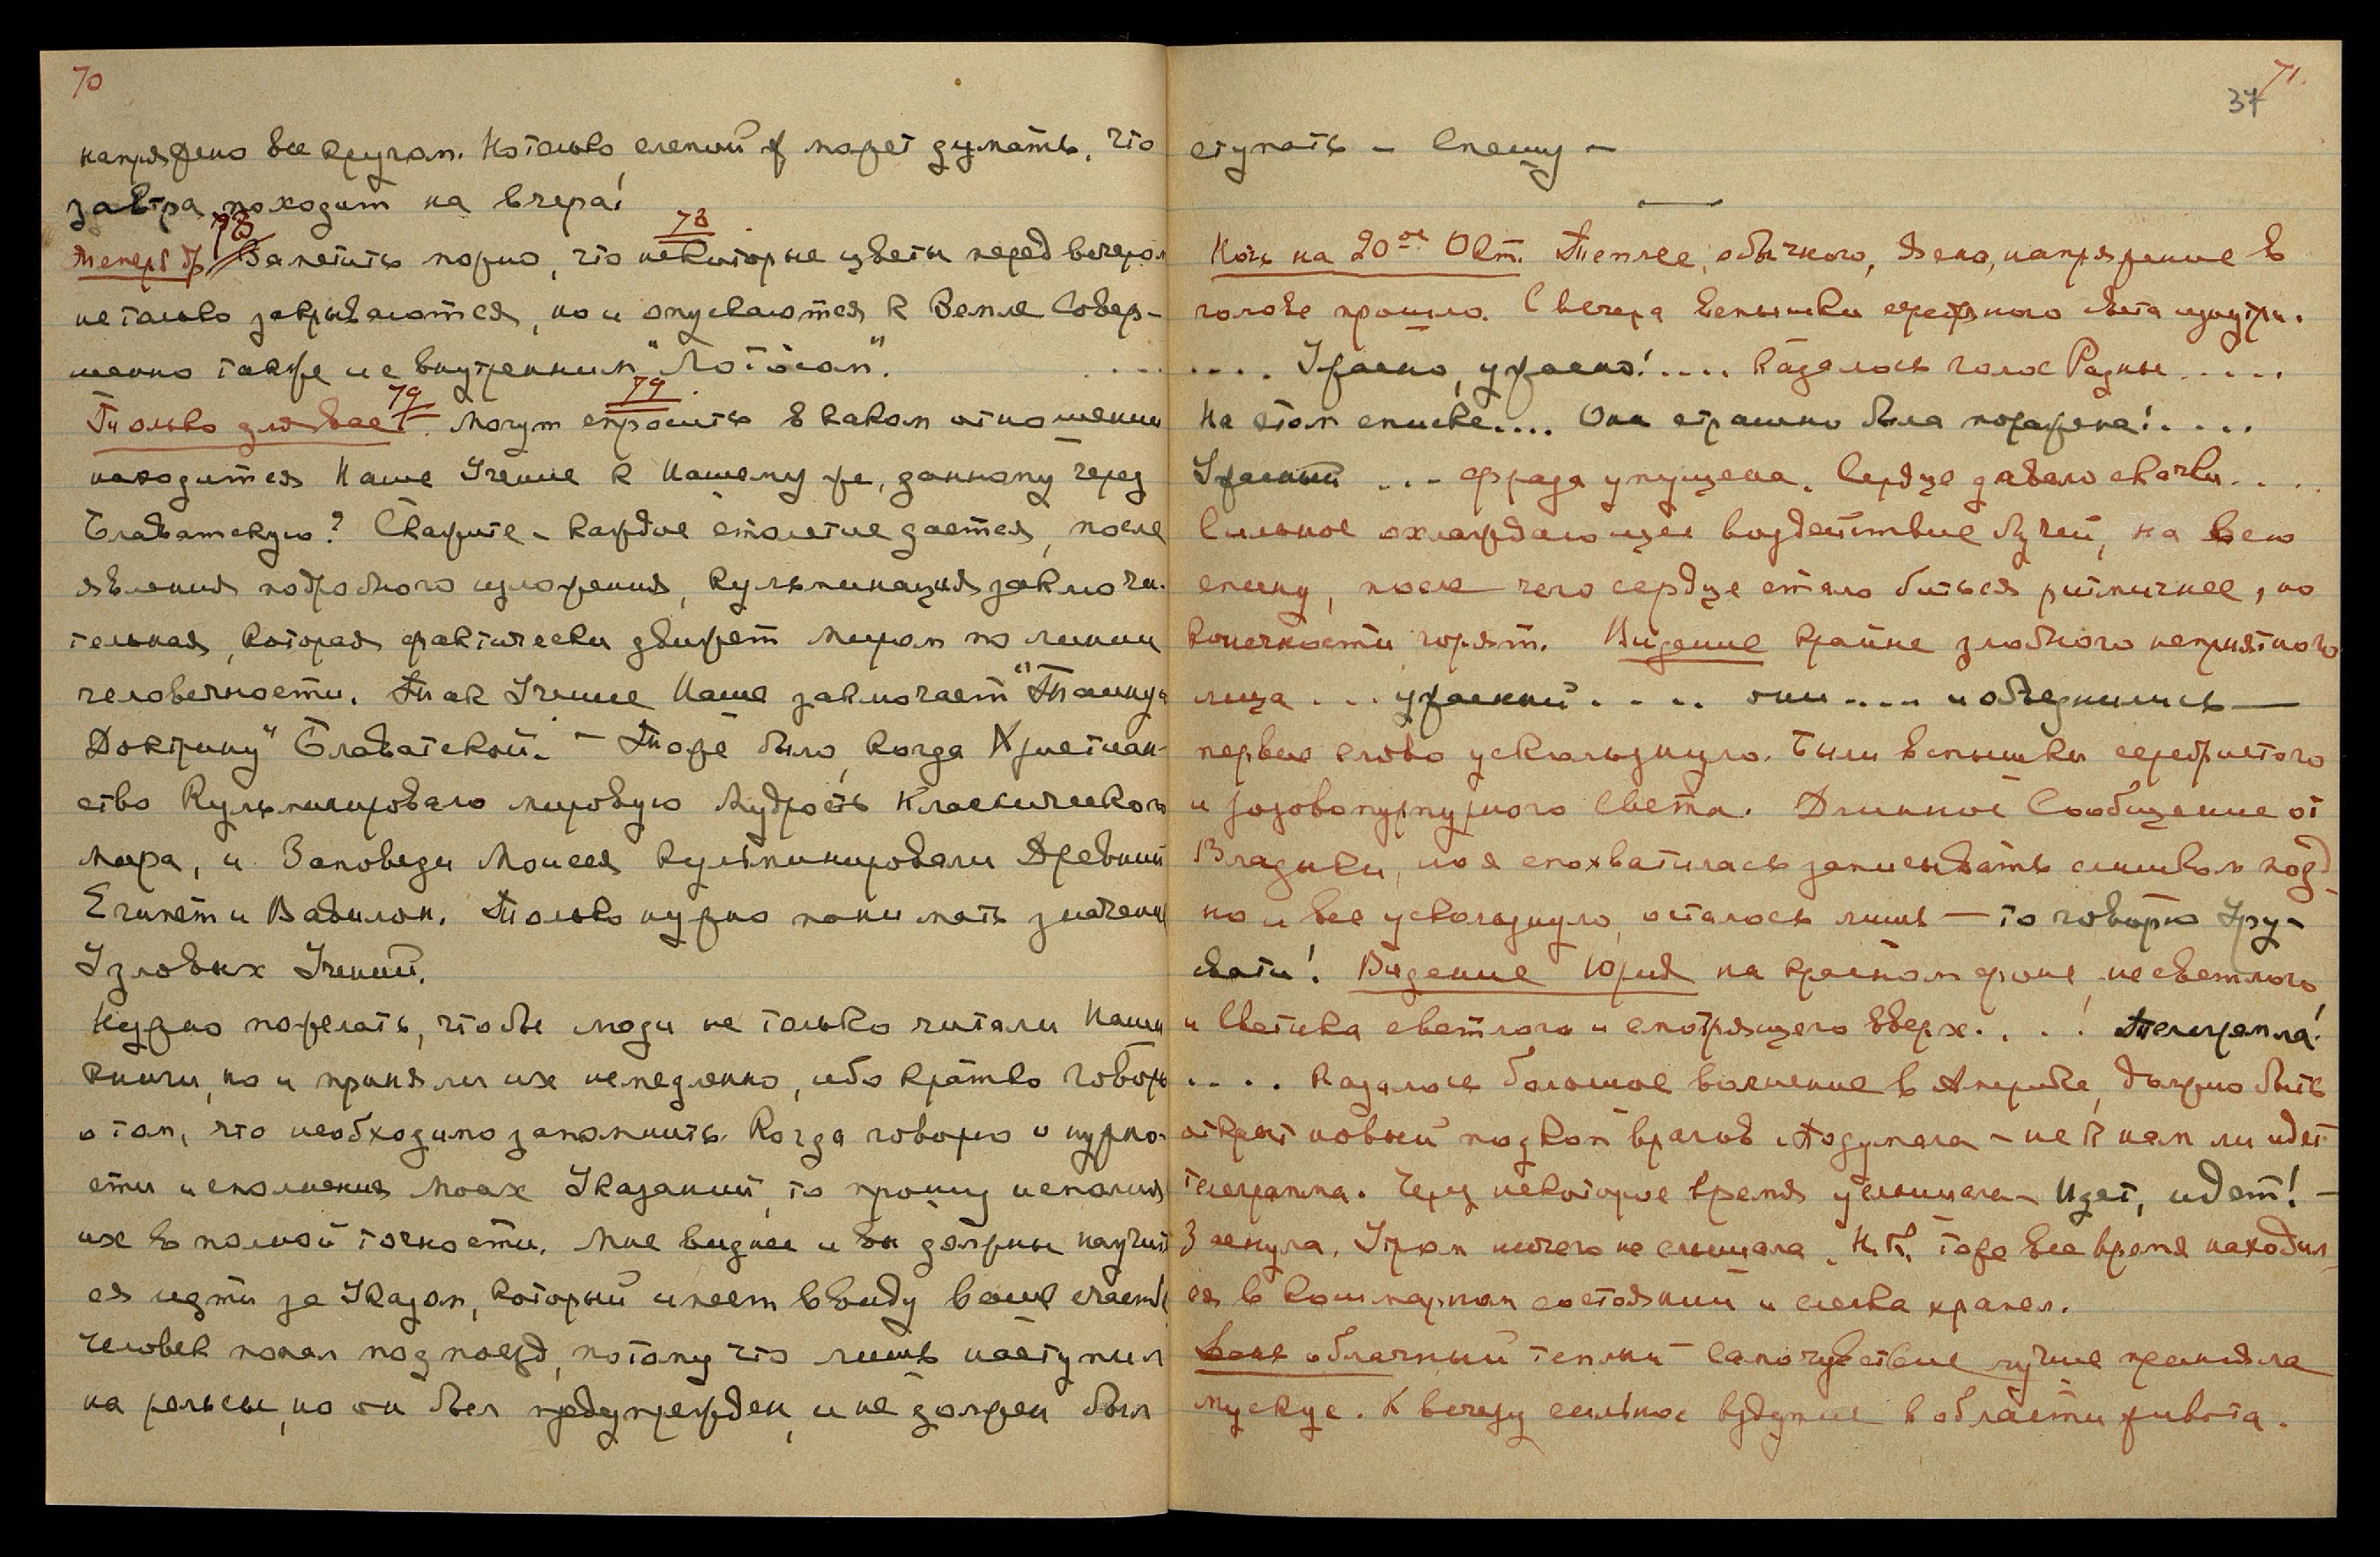 70
напряжено все кругом. Но только слепый может думать, что
завтра походит на вчера!
78
78
Теперь др. Заметить можно, что некоторые цветы перед вечером
не только закрываются, но и опускаются к Земле Совер-
шенно также и с внутренним "Лотосом".
79
79
Только для вас. Могут спросить в каком отношении
находится Наше Учение к Нашему же, данному через
Блаватскую? Скажите – каждое столетие дается, после
явления подробного изложения, кульминация заключи-
тельная, которая фактически движет миром по линии
человечности. Так Учение Наше заключает "Тайную
Доктрину" Блаватской. – Тоже было, когда Христиан-
ство Кульминировало мировую Мудрость Классического
мира, и Заповеди Моисея кульминировали Древний
Египет и Вавилон. Только нужно понимать значение
Узловых Учений.
Нужно пожелать, чтобы люди не только читали Наши
книги, но и приняли их немедленно, ибо кратко говорю
о том, что необходимо запомнить. Когда говорю о нужно-
сти исполнения Моих Указаний, то прошу исполнять
их в полной точности. Мне виднее и вы должны научить
ся идти за Указом, который имеет ввиду ваше счастье
Человек попал под поезд, потому что лишь наступил
на рельсы, но он был предупрежден, и не должен был
71.
37
ступать – Спешу –
Ночь на 20ое Окт. Теплее, обычного, Ясно, напряжение в
голове прошло. С вечера вспышки серебряного света изнутри.
.... Ужасно, ужасно! .... казалось голос Радны .....
На этом списке.... Она страшно была поражена! ....
Ужасный ... фраза упущена. Сердце давало скачки....
Сильное охлаждающее воздействие Лучей, на всю
спину, после чего сердце стало биться ритмичнее, но
конечности горят. Видение крайне злобного неприятного
лица ... ужасный .... они .... и объединились —
первое слово ускользнуло. Были вспышки серебристого
и розовопурпурного света. Длинное Сообщение от
Владыки, но я спохватилась записывать слишком позд-
но и все ускользнуло, осталось лишь — то говорю Уру-
свати! Видение Юрия на красном фоне не светлого
и Светика светлого и смотрящего вверх....! Телеграмма!
.... Казалось большое волнение в Америке, должно быть
открыт новый подкоп врагов Подумала – не к нам ли идет
телеграмма. Через некоторое время услышала – Идет, идет! –
Заснула. Утром ничего не слышала. Н.К. тоже все время находил-
ся в кошмарном состоянии и слегка храпел.
День облачный теплый самочувствие лучше приняла
мускус. К вечеру сильное вздутие в области живота.